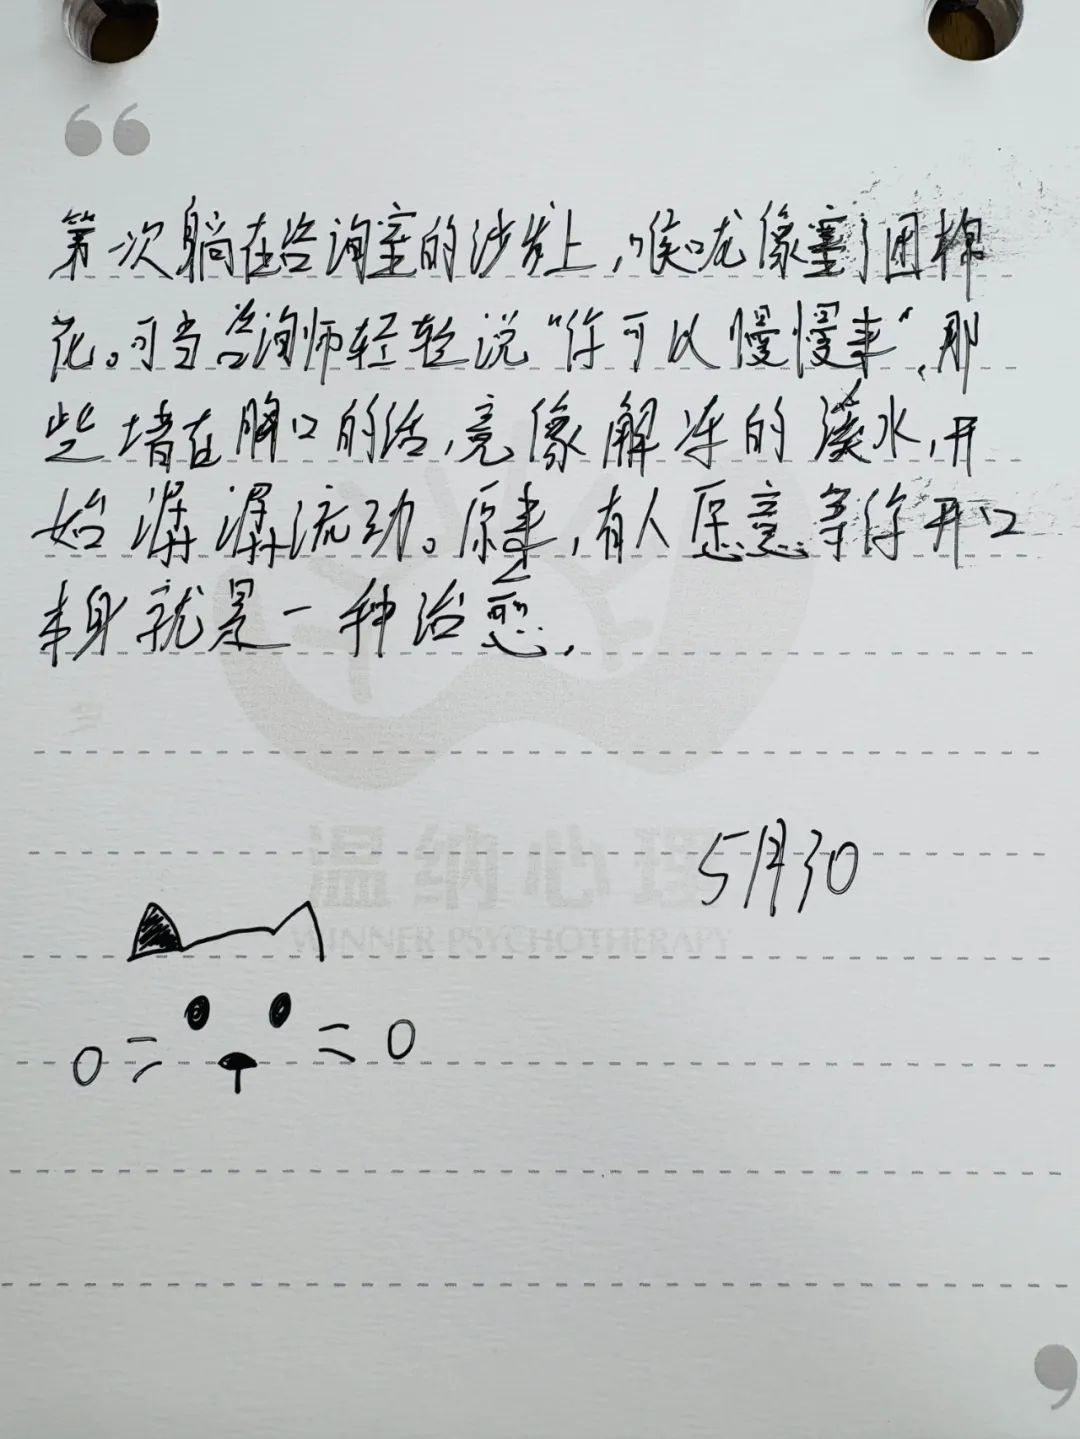 第一次躺在咨询室的沙发上,喉咙像塞了团棉
花。可当咨询师轻轻说“你可以慢慢来”,那
些堵在胸口的话,竟像解冻的溪水,开
始潺潺流动。原来,有人愿意等你开口
本身就是一种治愈.
5月30
温纳心理
WINNER PSYCHOTHERAPY